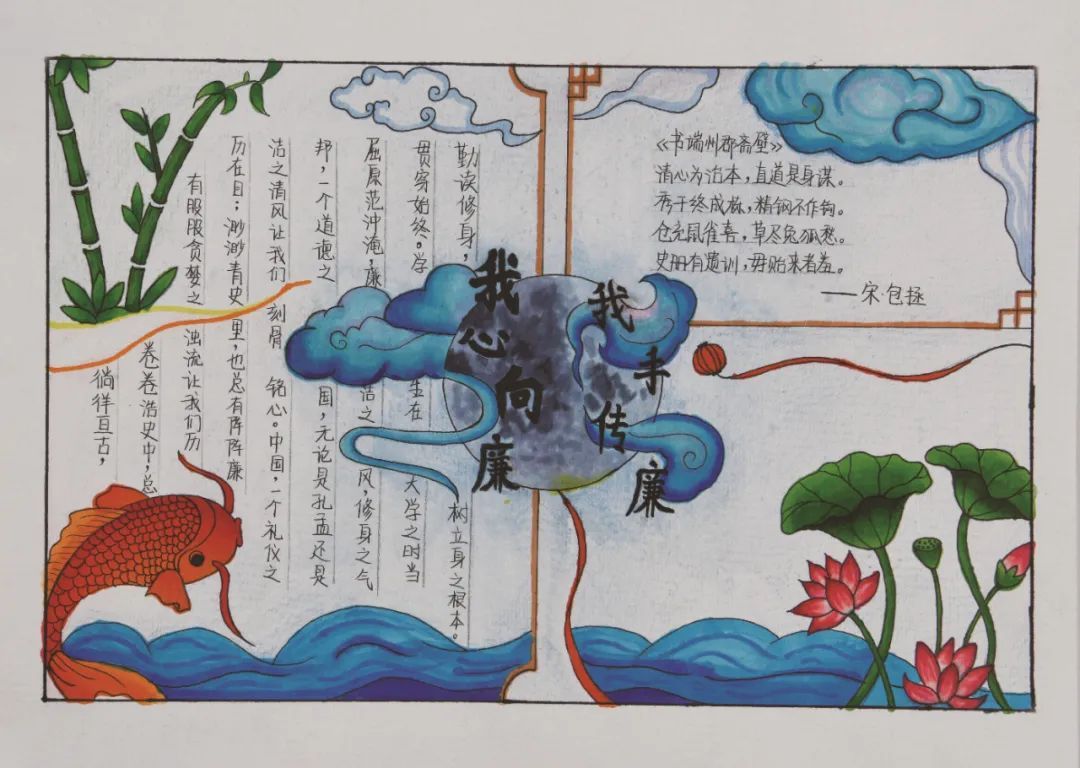 我心向廉
我手传廉
徜徉亘古，
卷卷浩史中，总
有股股贪婪之浊流让我们历
历在目；渺渺青史里，也总有阵阵廉
洁之清风让我们刻骨铭心。中国，一个礼仪之
邦，一个道德之国，无论是孔孟还是
屈原范冲淹，廉洁之风，修身之气
贯穿始终。学生在大学之时当
勤读修身，树立身之根本。
《书端州郡斋壁》
清心为治本，直道是身谋。
秀干终成栋，精钢不作钩。
仓充鼠雀喜，草尽兔狐愁。
史册有遗训，毋贻来者羞。
——宋·包拯